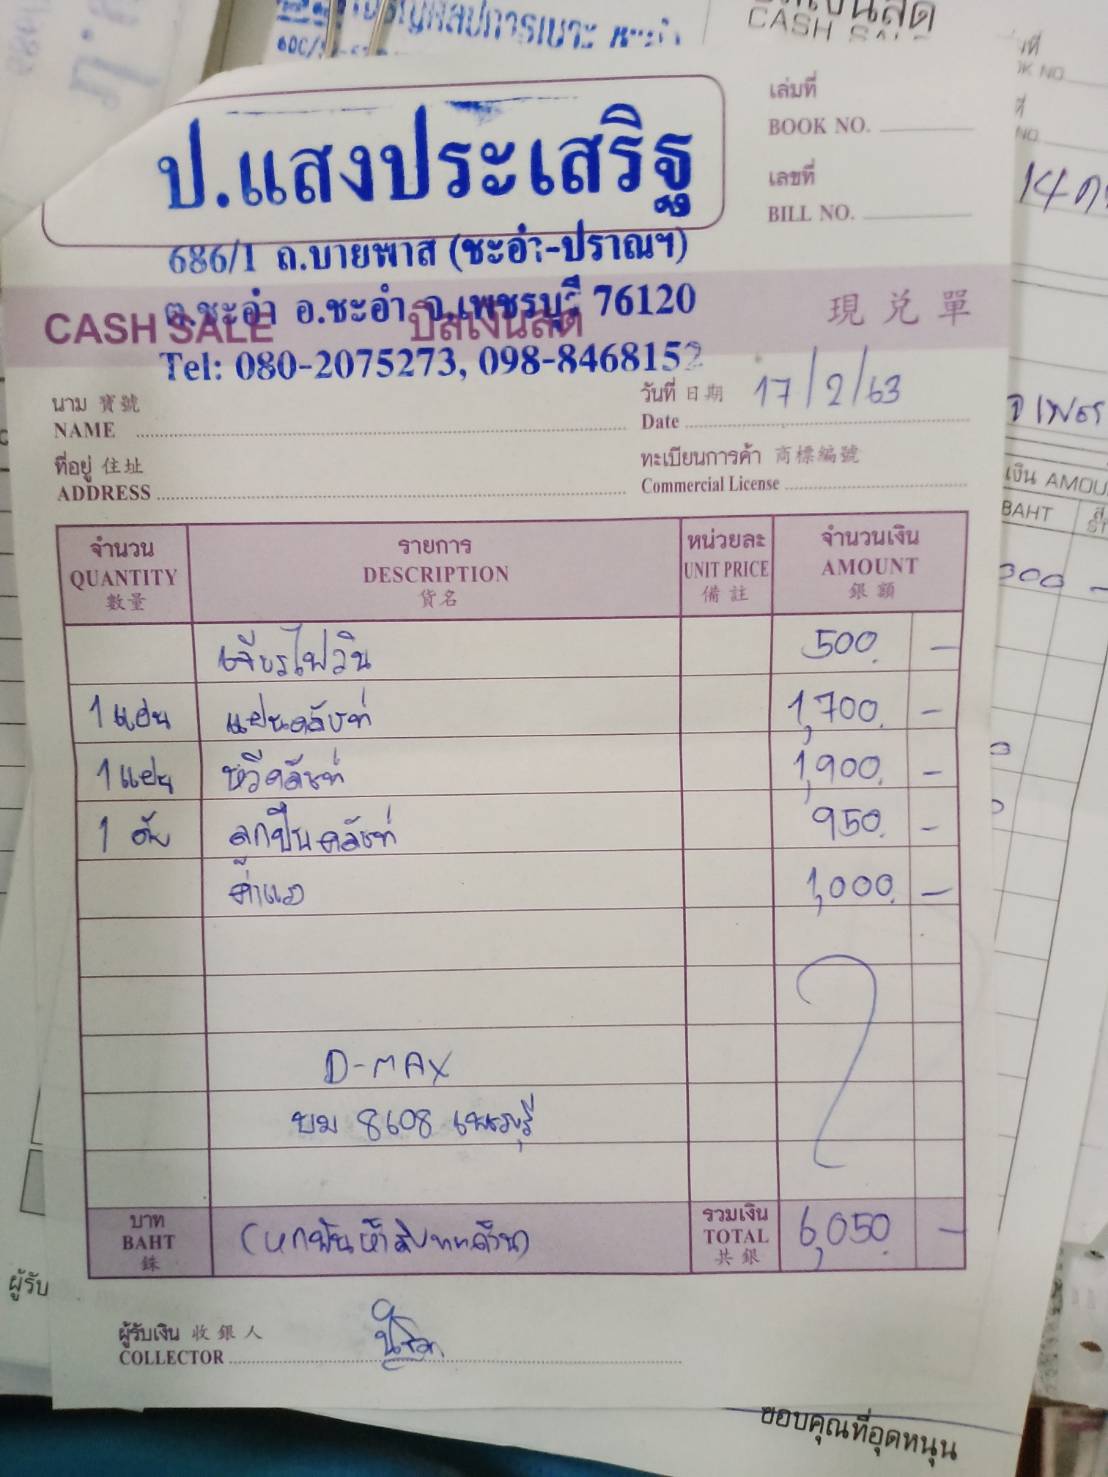 CASH SALE
เล่มที่
BOOK NO.
เลขที่
BILL NO.
ป.แสงประเสริฐ
686/1 ถ.บายพาส (ชะอำ-ปราณฯ)
ต.ชะอำ อ.ชะอำ จ.เพชรบุรี 76120
CASH SALE บิลเงินสด 現兑單
Tel: 080-2075273, 098-8468152
นาม 寶號
NAME
วันที่ 日期
Date 17/2/63
ที่อยู่ 住址
ADDRESS
ทะเบียนการค้า 商標編號
Commercial License
จำนวน รายการ หน่วยละ จำนวนเงิน
QUANTITY DESCRIPTION UNIT PRICE AMOUNT
數量 貨名 備註 銀額
เจียรไฟวิน 500 –
1 แผ่น แผ่นคลัทช์ 1,700 –
1 แผ่น หวีคลัทช์ 1,900 –
1 ลูกปืนคลัทช์ 950 –
ค่าแรง 1,000 –
D-MAX
ขม 8608 เพชรบุรี
บาท
BAHT
銖
(หกพันห้าสิบบาทถ้วน)
รวมเงิน
TOTAL
共銀
6,050 –
ผู้รับเงิน 收銀人
COLLECTOR
ผู้รับ
14
เงิน AMOU
BAHT
000 –
ขอบคุณที่อุดหนุน